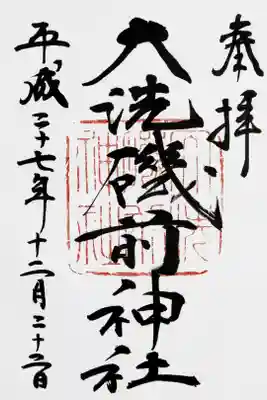 奉拝
大洗磯前神社
平成二十七年十二月二十二日